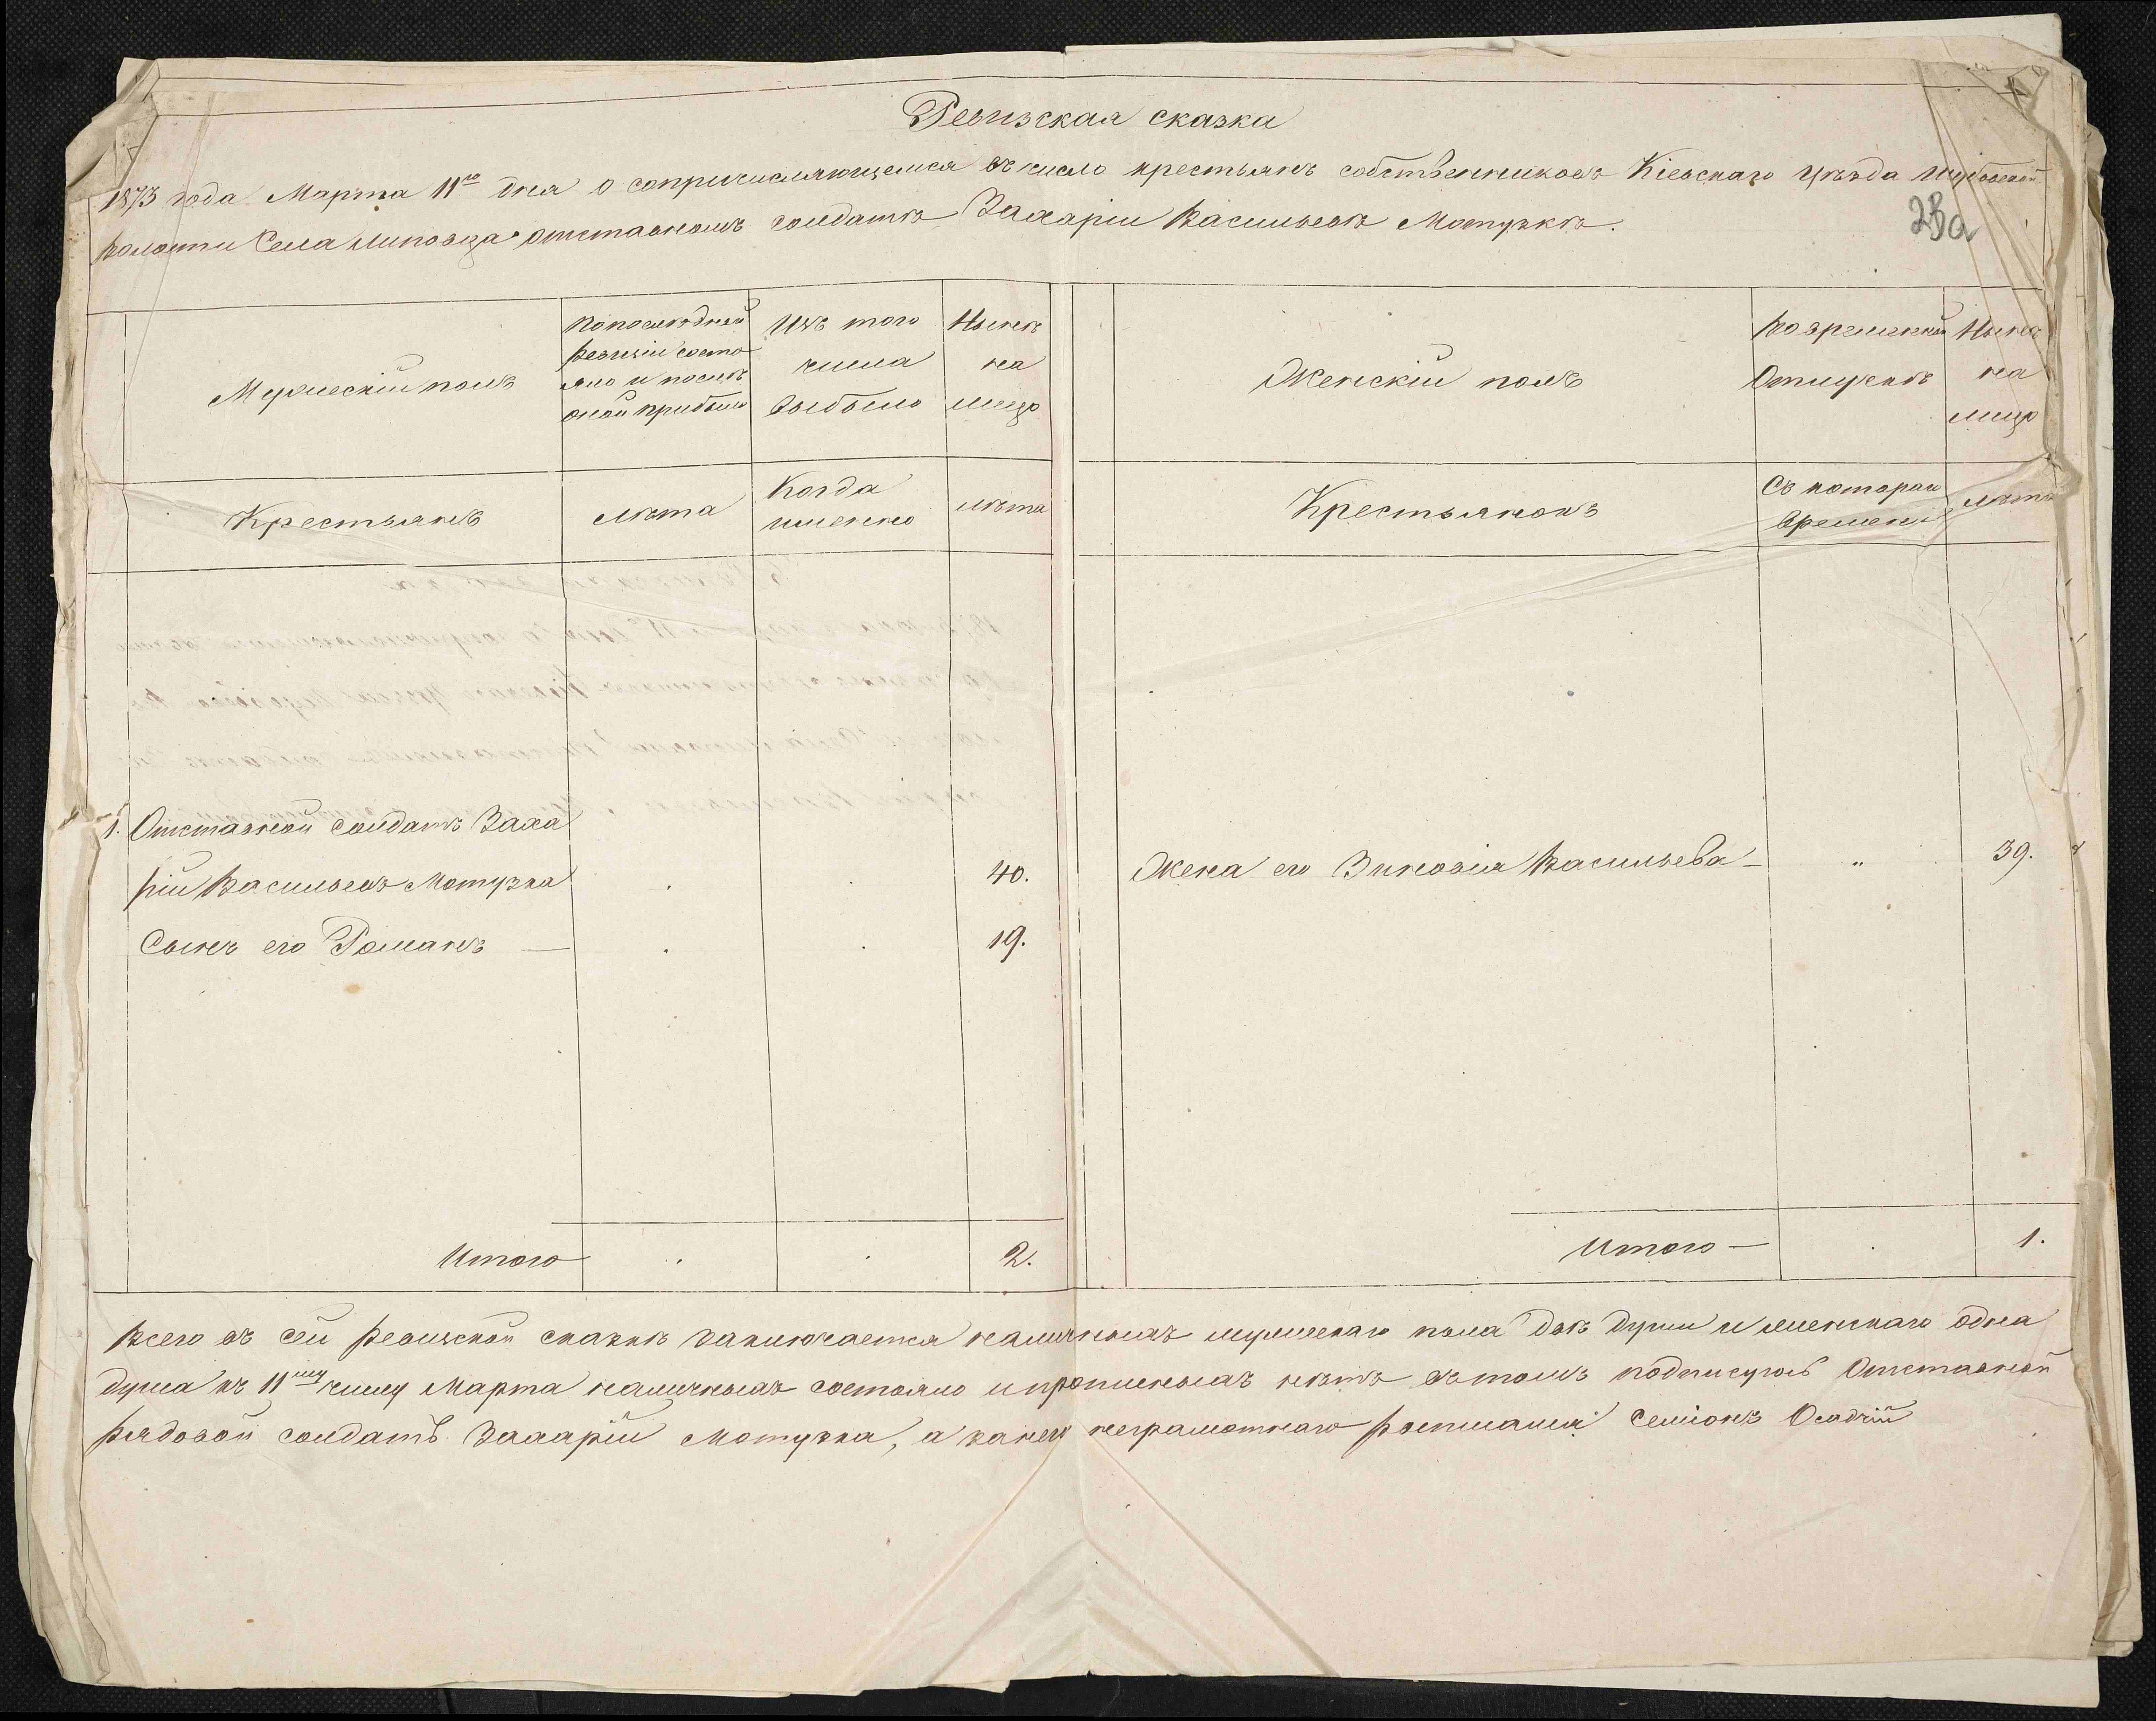 Ревизская сказка
1873 года Марта 11го дня о сопричисляющемся въ число крестьянъ собственниковъ Кіевскаго Уѣзда
волости Села Липовца отставномъ солдатѣ Захаріи Васильевѣ Мотузкѣ.
23а
Мужескій полъ
По последней
ревизіи состо
яло и послѣ
оной прибыло
Изъ того
числа
выбыло
Нынѣ
на
лицо
Женскій полъ
Во временной
Отлучкѣ
Нынѣ
на
лицо
Крестьянъ
лѣта
Когда
именно
лѣта
Крестьянокъ
Съ котораго
времени
лѣта
1. Отставной солдатъ Заха
рій Васильевъ Мотузка 40.
Жена его Зиновія Васильева — " 39.
Сынъ его Романъ — 19.
Итого 2.
Итого — 1.
Всего въ сей ревизской сказкѣ заключается наличныхъ мужескаго пола двѣ души и женскаго одна
душа къ 11му числу Марта наличныхъ состояло и прописныхъ нѣтъ въ томъ подписуюсь Отставной
рядовой солдатъ Захарій Мотузка, а за него неграмотнаго росписался Семіонъ Осадчій